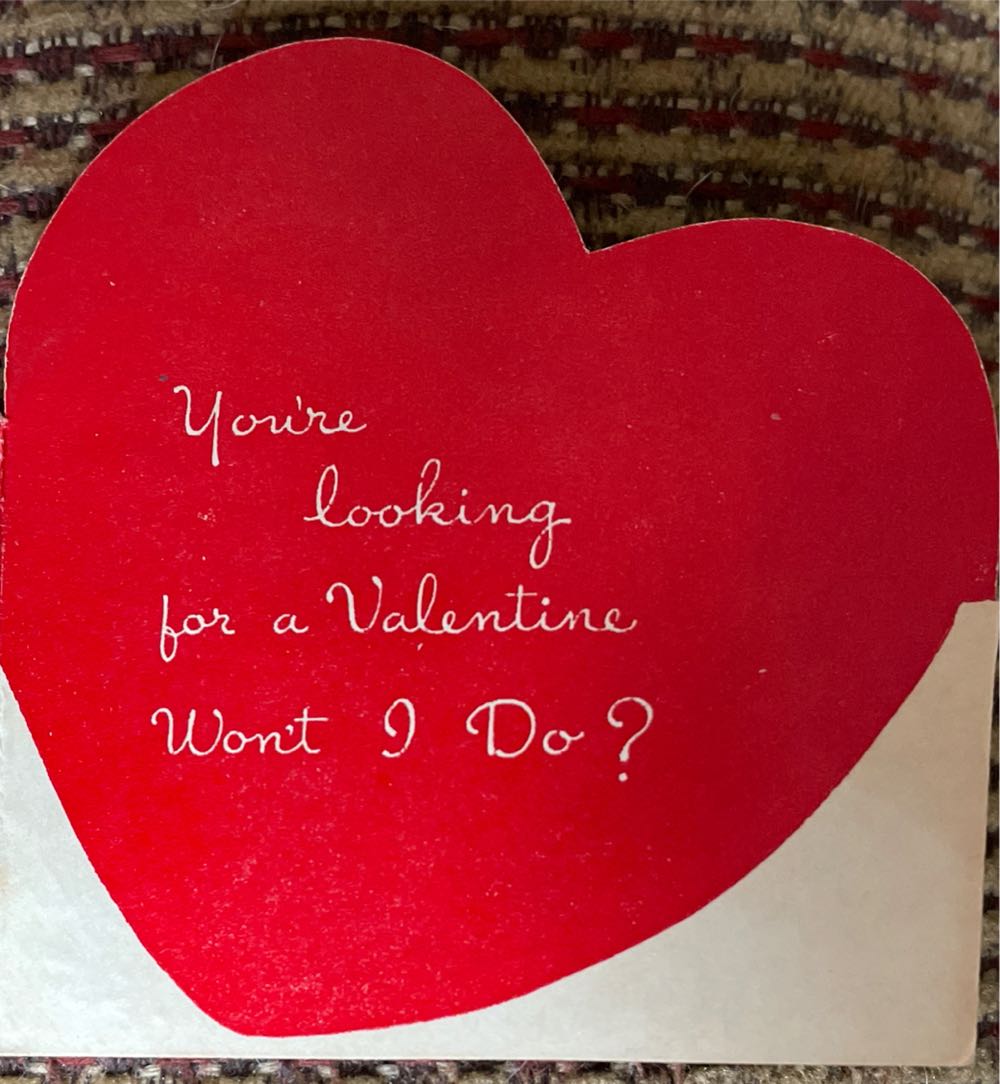 You're
looking
for a Valentine
Won't I Do?